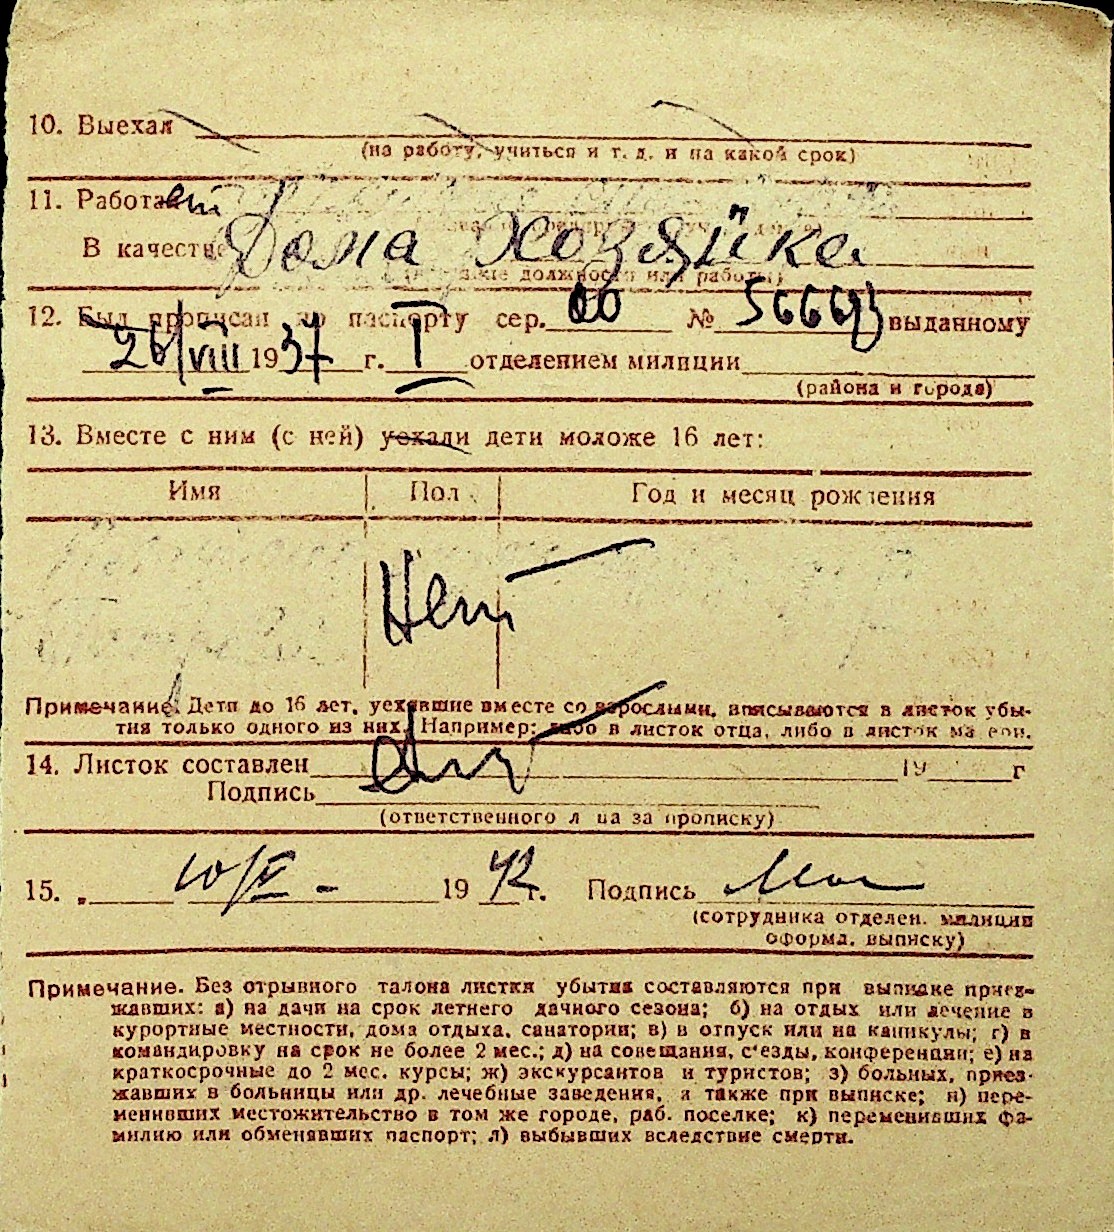 10. Выехал
(на работу, учиться и т. д. и на какой срок)
11. Работает
В качестве Дома хозяйка
12. Был прописан по паспорту сер. № 566693 выданному
26/VIII 1937 г. I отделением милиции
(района и города)
13. Вместе с ним (с ней) уехали дети моложе 16 лет:
Имя Пол Год и месяц рождения
Нет
Примечание. Дети до 16 лет, уехавшие вместе со взрослыми, вписываются в листок убы-
тия только одного из них. Например: либо в листок отца, либо в листок матери.
14. Листок составлен 19 г
Подпись
(ответственного лица за прописку)
15. „ 10/II - 1942 г. Подпись
(сотрудника отделен. милиции
оформл. выписку)
Примечание. Без отрывного талона листки убытия составляются при выписке приез-
жавших: а) на дачи на срок летнего дачного сезона; б) на отдых или лечение в
курортные местности, дома отдыха, санатории; в) в отпуск или на каникулы; г) в
командировку на срок не более 2 мес.; д) на совещания, с'езды, конференции; е) на
краткосрочные до 2 мес. курсы; ж) экскурсантов и туристов; з) больных, приез-
жавших в больницы или др. лечебные заведения, а также при выписке; и) пере-
менивших местожительство в том же городе, раб. поселке; к) переменивших фа-
милию или обменявших паспорт; л) выбывших вследствие смерти.